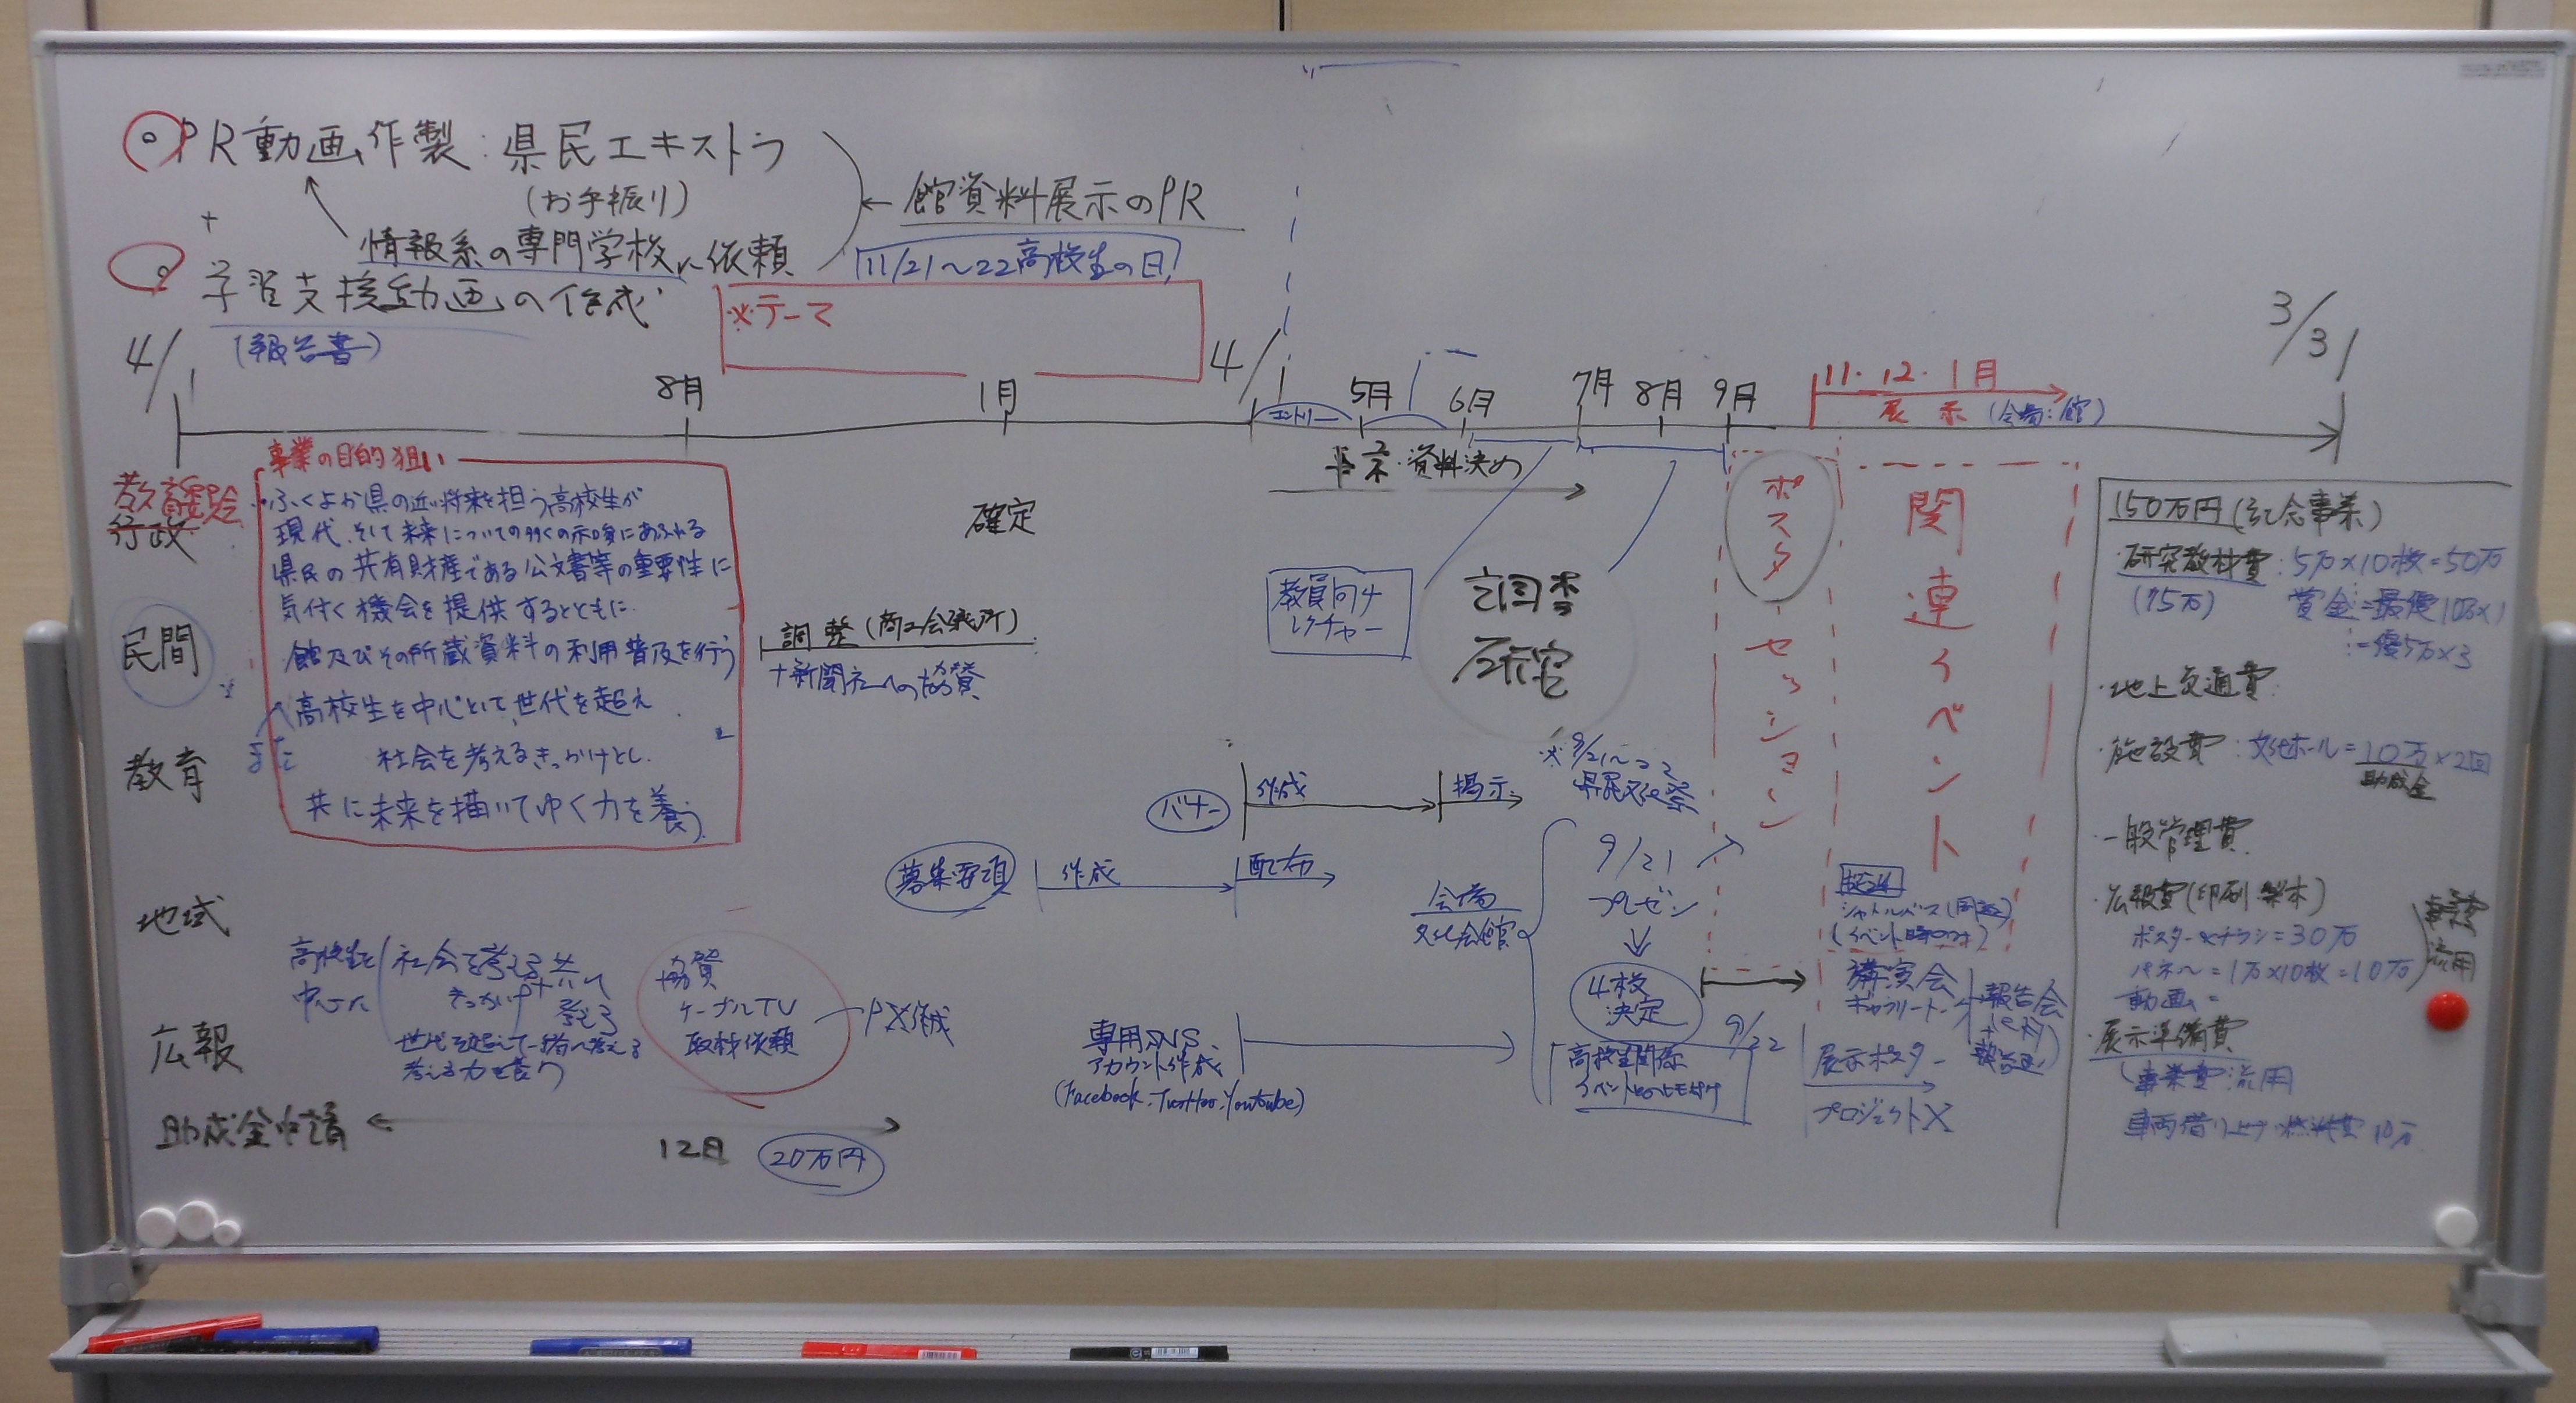 PR動画作製:県民エキストラ
(お手振り)
+
情報系の専門学校に依頼
←館資料展示のPR
11/21〜22高校生の日
学習支援動画の作成
(報告書)
※テーマ
4/1
8月
1月
4/1
エントリー
5月
6月
7月
8月
9月
11・12・1月
展示
(会場:館)
3/31
教育委員会
行政
民間
教育
地域
広報
助成金申請
12月
20万円
事業の目的狙い
・ふくよか県の近い将来を担う高校生が
現代、そして未来についての多くの示唆にあふれる
県民の共有財産である公文書等の重要性に
気付く機会を提供するとともに、
館及びその所蔵資料の利用普及を行う
また
高校生を中心として、世代を超え
社会を考えるきっかけとし、
共に未来を描いてゆく力を養う
確定
調整(商工会議所)
+新聞社への協賛
資料決め
教員向け
レクチャー
調査
研究
ポスターセッション
関連イベント
バナー
作成
掲示
※9/21〜22
県民文化祭
募集要項
作成
配布
会場
文化会館
9/21
プレゼン
4枚
決定
9/22
高校生関係
シャトルバス
(イベント時のみ)
講演会
ギャラリートーク
報告会
展示ポスター
プロジェクトX
高校生を
中心に
社会を考える
きっかけ
共に
考える
世代を超えて一緒に考える
考える力を養う
協賛
ケーブルTV
取材依頼
専用SNS
アカウント作成
(Facebook・Twitter・Youtube)
150万円(記念事業)
・研究教材費:5万×10枚=50万
(75万)
賞金:最優10万×1
優5万×3
・地上交通費
・施設費:文化ホール=10万×2回
助成金
・一般管理費
・広報費(印刷・製本)
ポスター&チラシ=30万
パネル=1万×10枚=10万
動画=
流用
・展示準備費
事業費流用
車両借り上げ・燃料費10万